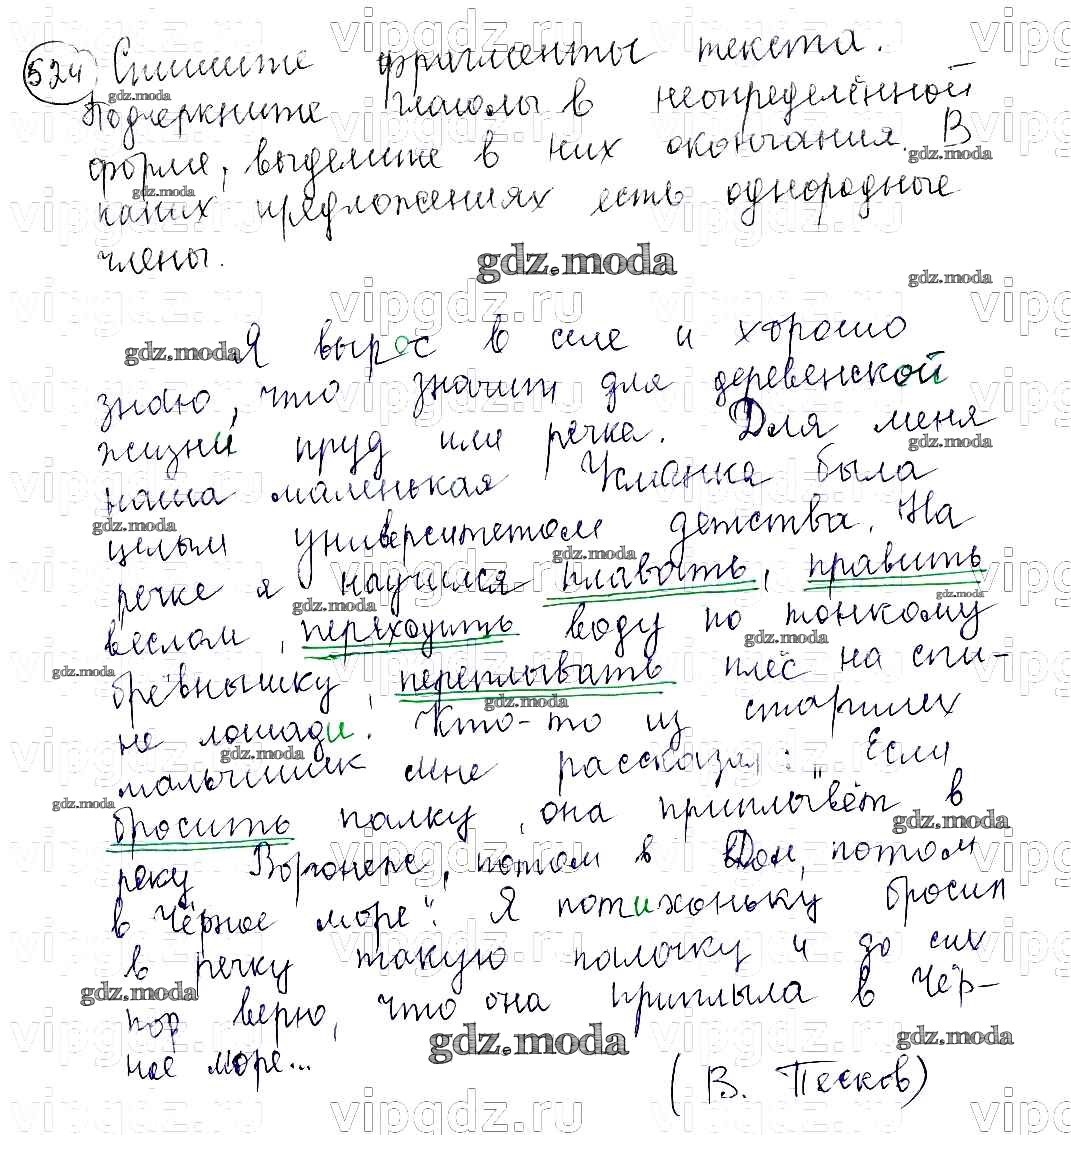 524 Спишите фрагменты текста.
Подчеркните глаголы в неопределённой
форме, выделите в них окончания. В
каких предложениях есть однородные
члены.
Я вырос в селе и хорошо
знаю, что значит для деревенской
жизни пруд или речка. Для меня
наша маленькая Усманка была
целым университетом детства. На
речке я научился плавать, править
веслом, переходить воду по тонкому
брёвнышку, переплывать плёс на спи-
не лошади. Кто-то из старших
мальчишек мне рассказал: "Если
бросить палку, она приплывёт в
реку Воронеж, потом в Дон, потом
в Чёрное море". Я потихоньку бросил
в речку такую палочку и до сих
пор верю, что она приплыла в Чёр-
ное море...
(В. Песков)
gdz.moda
vipgdz.ru